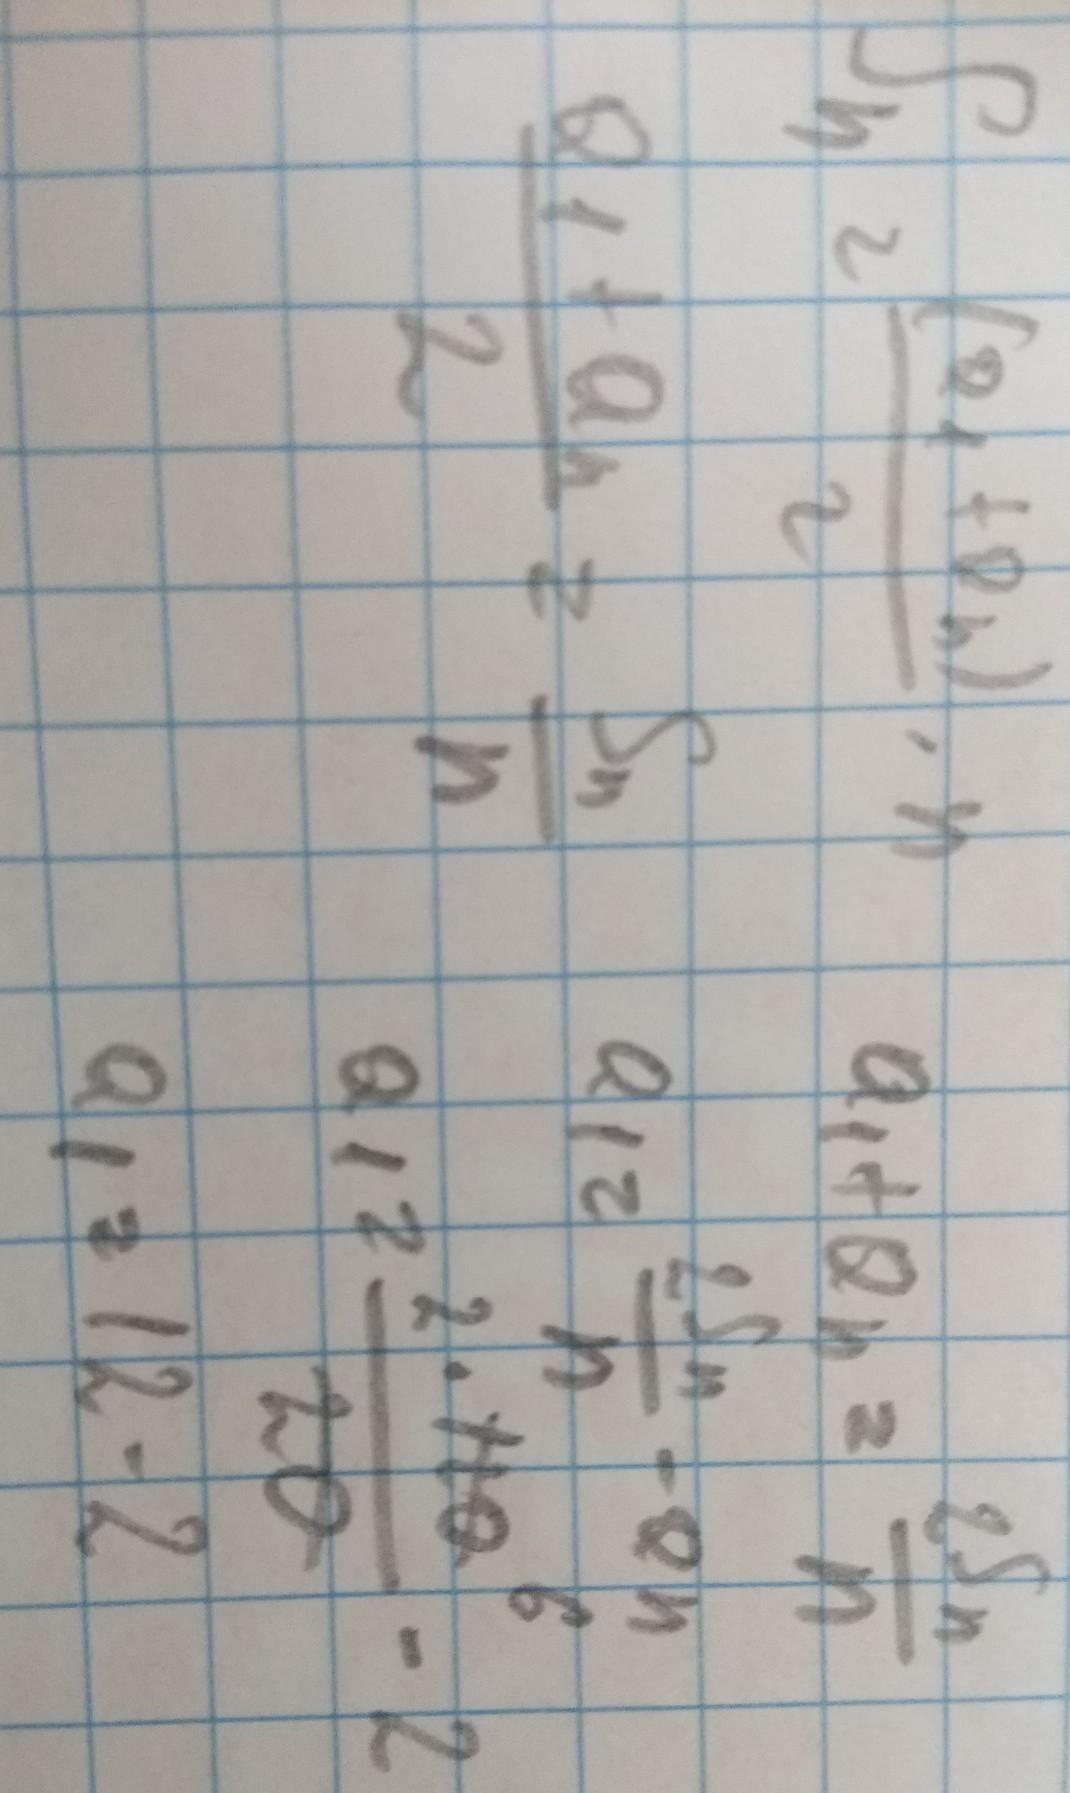 Sn = (a1 + an) / 2 · n
a1 + an / 2 = Sn / n
a1 + an = 2Sn / n
a1 = 2Sn / n - an
a1 = 2 · 120 6 / 20 - 2
a1 = 12 - 2